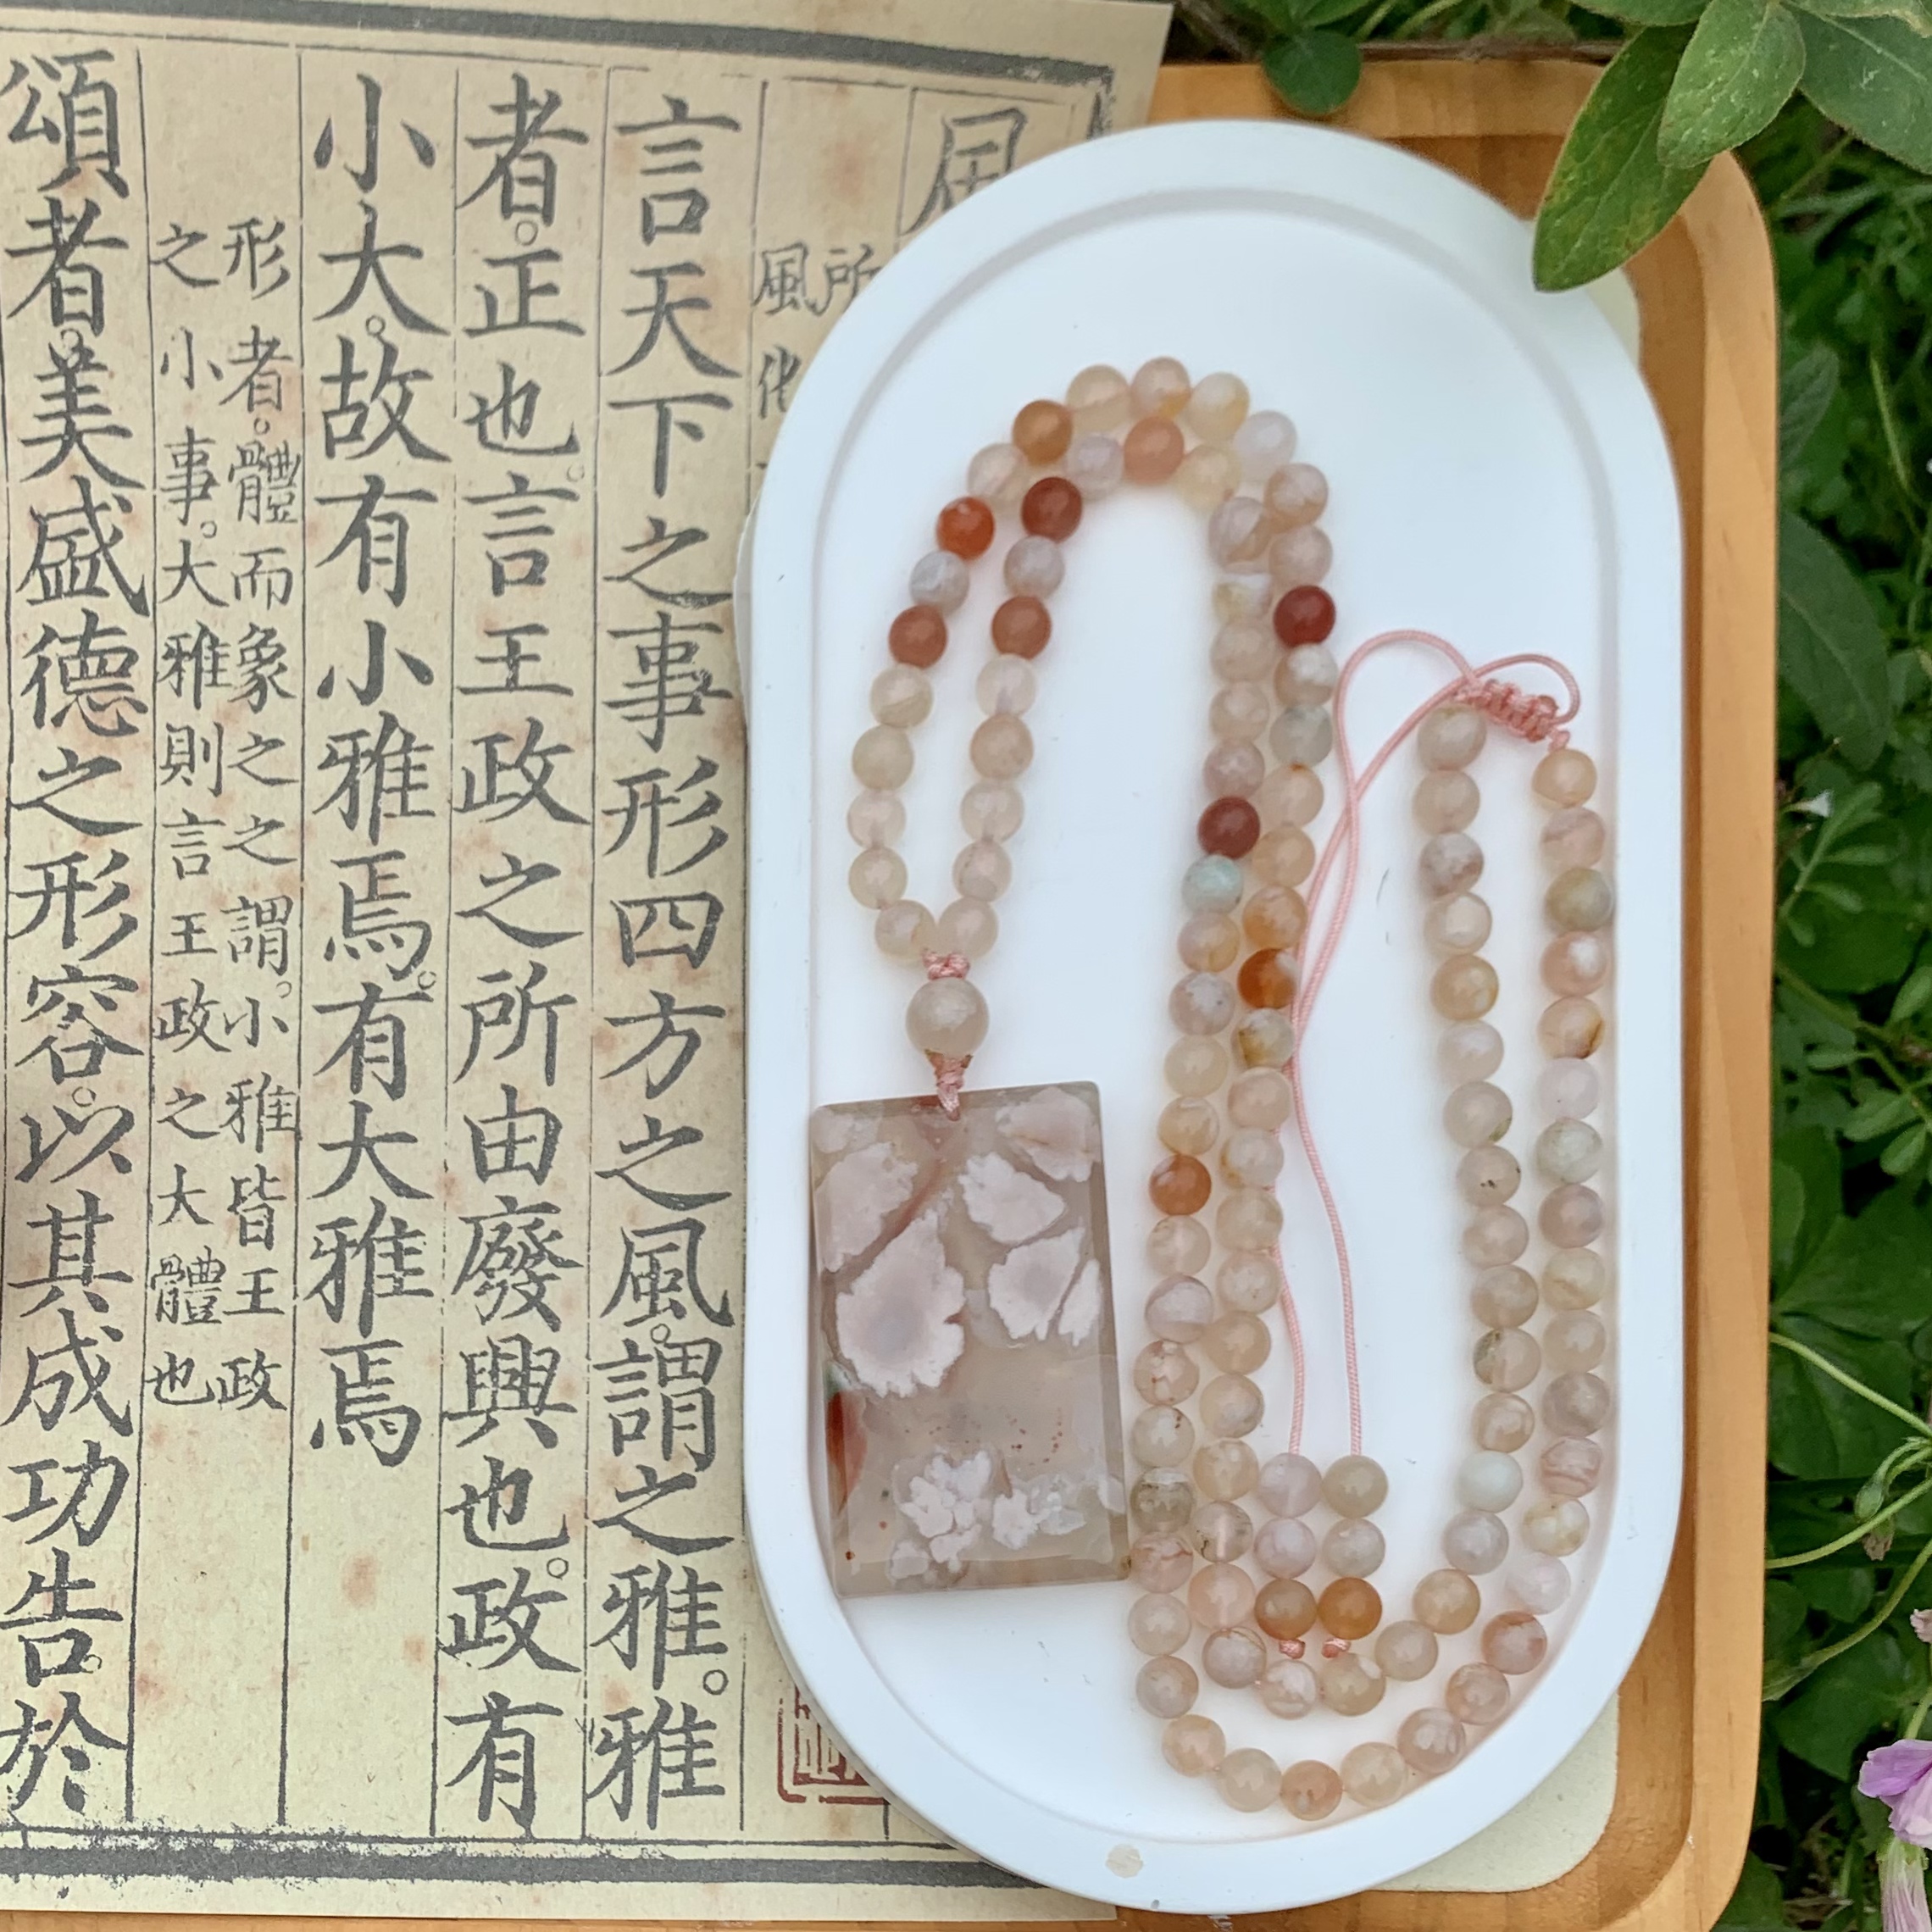 所
風化
言天下之事形四方之風。謂之雅。雅
者。正也。言王政之所由廢興也。政有
小大。故有小雅焉。有大雅焉
形者。體而象之之謂。小雅皆王政
之小事。大雅則言王政之大體也
頌者。美盛德之形容。以其成功告。於